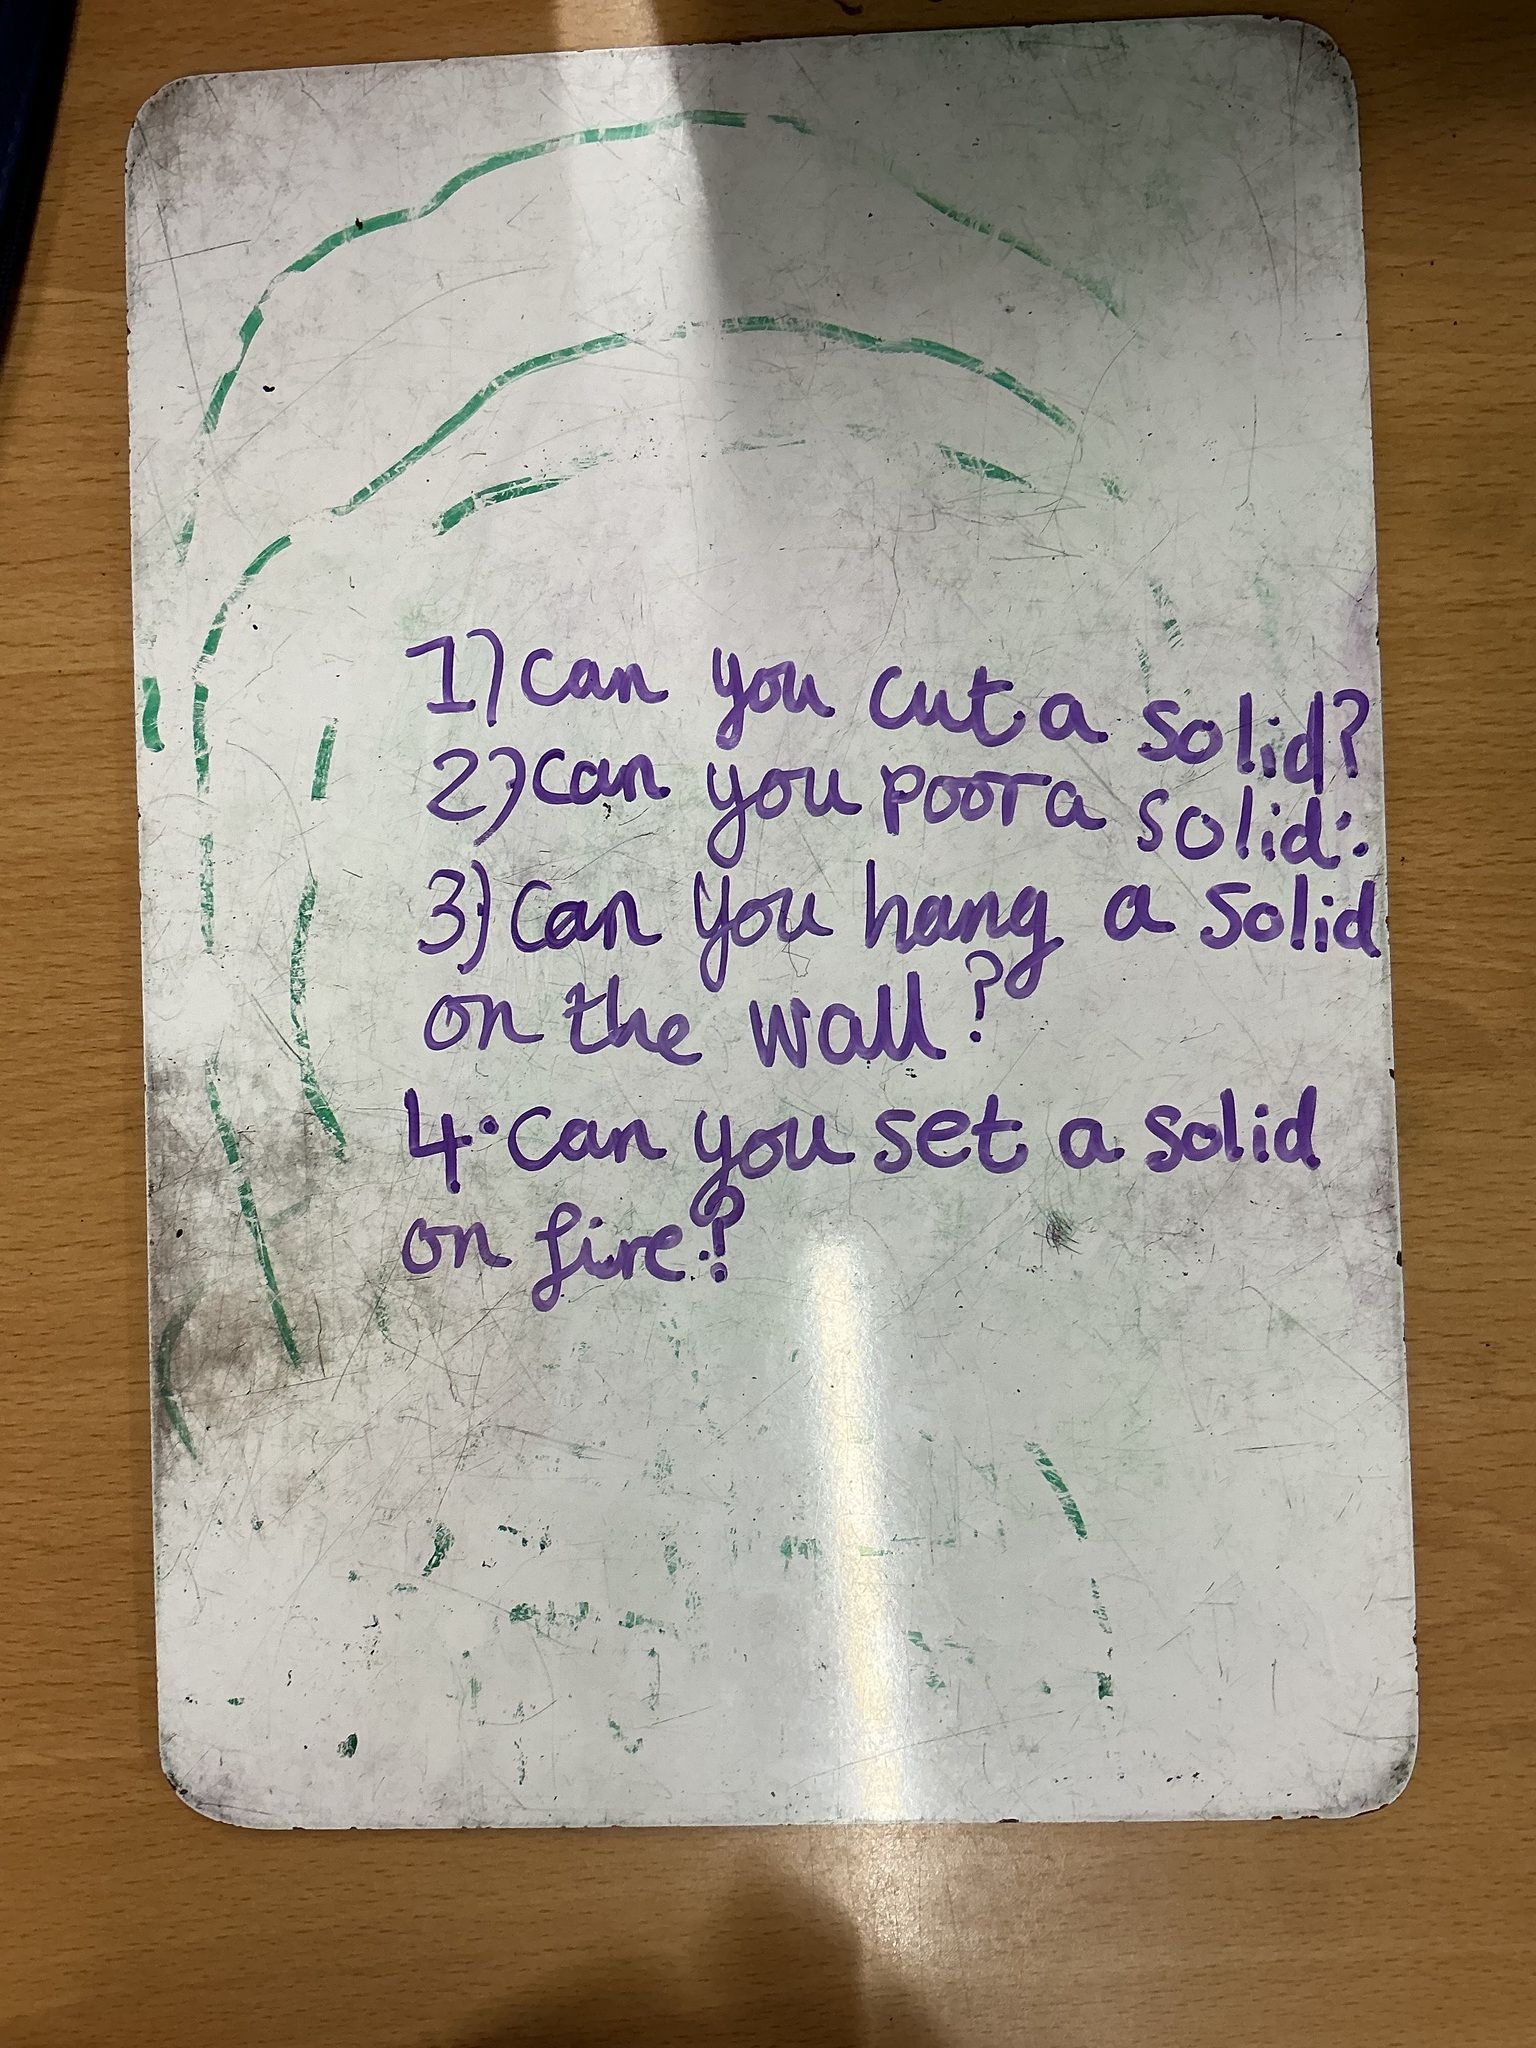 1) Can you cut a solid?
2) Can you poor a solid?
3) Can you hang a solid
on the wall?
4. Can you set a solid
on fire?